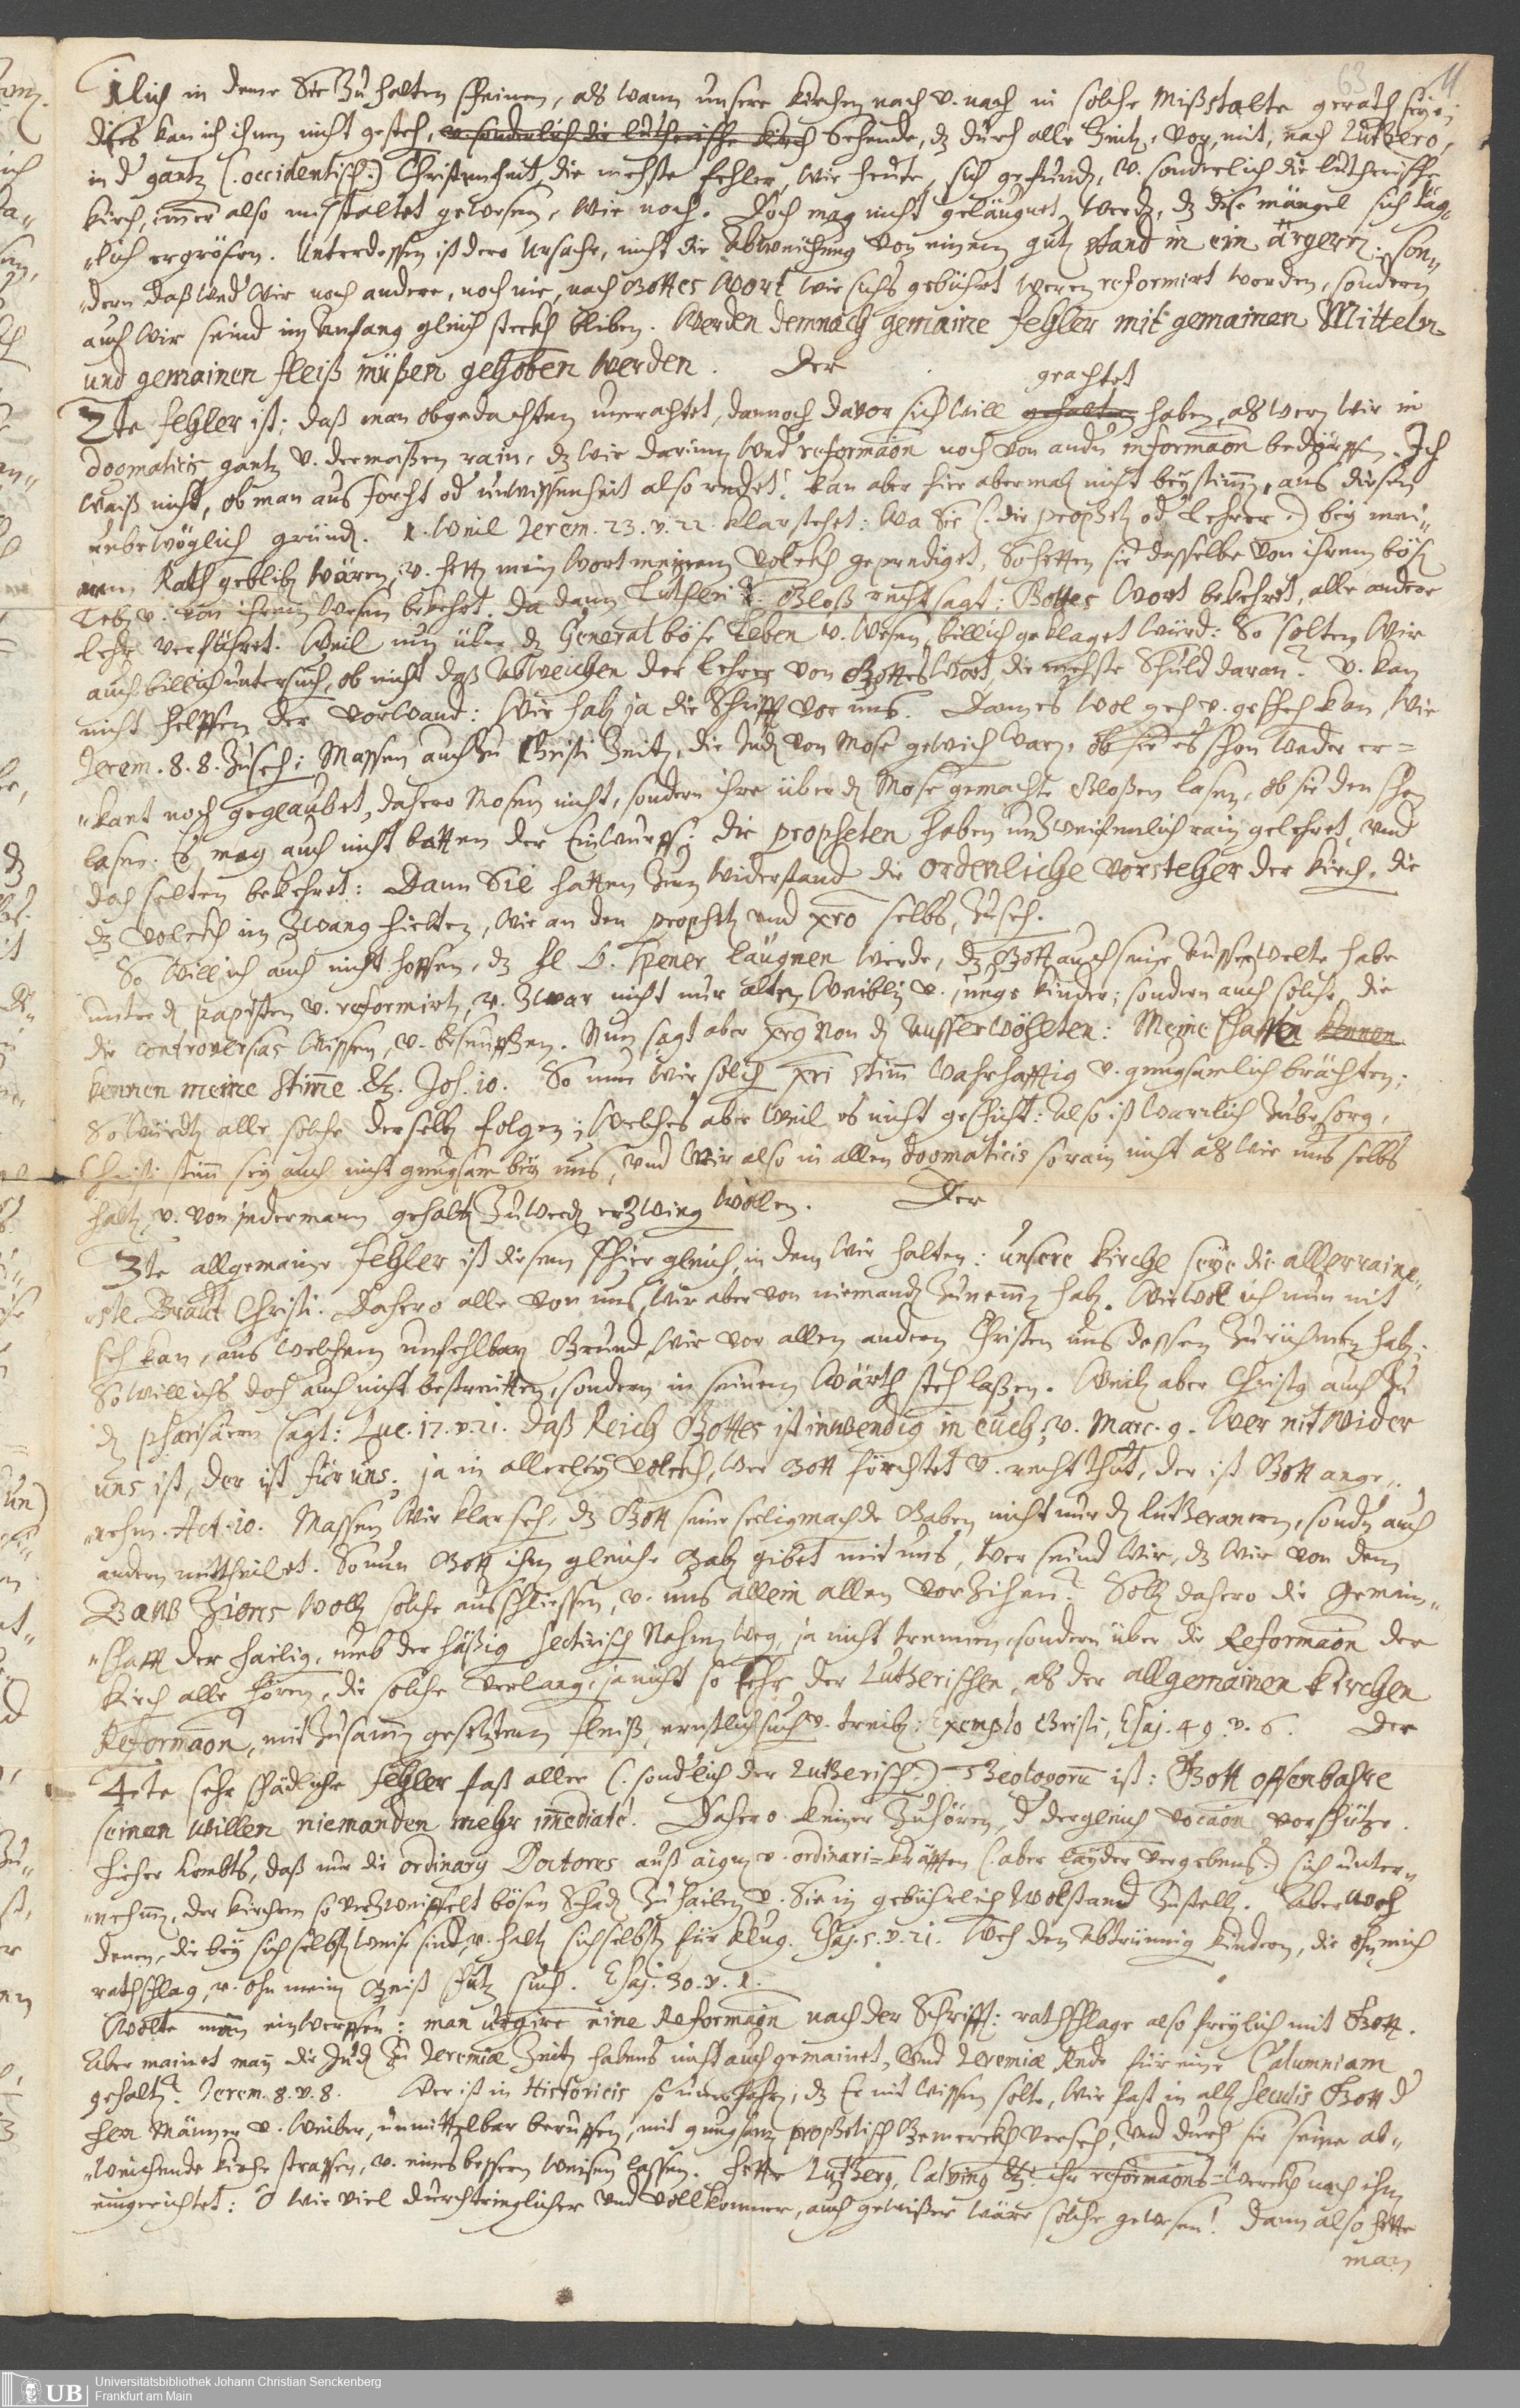 63 11
1lich in deme Sie zu halten scheinen, als wann unsere Kirchen nach v. nach in solche Mißstalte gerath seyen;
dises kan ich ihnen nicht gesteh, v. sonderlich die lutherische Kirch Sehende, dz durch alle Zeitz, vor, mit, nach Luthero,
in d gantz (. occidentisch .) Christenheit die mehste fehler, wie heute, sich gefunden, v. sonderlich die lutherische
Kirch, immer also misstaltet gewesen, wie noch. Doch mag nicht geläugnet werd, dz dise mängel sich täg-
lich ergrösen. Unterdessen ist dero Ursache, nicht die Abweichung von einem gutz stand in ein ärgern: son-
dern daß wed wir noch andere, noch nie, nach Gottes Wort wie sichs gebührt weren reformirt worden, sondern
auch wir seind im Anfang gleich steckh bliben. Werden demnach gemaine fehler mit gemainen Mitteln
und gemainen fleiß müßen gehoben werden. Der
geachtet
2te fehler ist; daß man obgedachten unerachtet, dannoch davor sich will gehalten haben, als wern wir in
dogmaticis gantz v. dermaßen rain, dz wir darinn wed reformaōn noch von andn informaōn bedörffen. Ich
waiß nicht, ob man aus forcht od unwissenheit also redet! kan aber hier abermalß nicht beystimm, aus diesen
unbewöglich gründ. 1. Weil Jerem. 23. v. 22 klar stehet: Wa Sie (. die Prophetz od Lehrer .) bey mei-
nem Rath geblibn wären, v. hettn mein Wort meinem volckh geprediget, So hetten sie dasselbe von ihrem bösn
Lebn v. von ihrem Wesen bekehrt. Da dann Gloß recht sagt: Gottes Wort bekehret, alle andere
Lehr verführet. Weil nun über dz General böse Leben v. Wesen, billich geklaget würd: So solten Wir
auch billich untersuch, ob nicht daß Abweichen der Lehrer von Gottes Wort, die mehste Schuld daran? v. kan
nicht helffen der vorwand: Wir habn ja die Schrifft vor uns. Dann es wol geh v. gescheh kan, wie
Jerem. 8. 8. zuseh: Massen auch zu Christi Zeitn, die Judn von Mose gewich warn, ob sie es schon weder er=
kant noch geglaubet, dahero Mosen nicht, sondern ihre über dn Mose gemachte Gloßen lasen, ob sie den schon
lasen: Es mag auch nicht batten der Einwurff; die propheten haben unzweifenlich rain gelehret, und
doch selten bekehret: Dann Sie hatten zum widerstand die ordenliche vorsteher der Kirch, die
dz volckh im Zwang hielten, wie an den prophetn und xro selbs, zuseh.
So will ich auch nicht hoffen, dz H. D. Spener läugnen werde, dz Gott auch seine Ausserwelte habe
unter dn papisten v. reformirtn, v. zwar nicht nur alten Weiblin v. junge Kinder; sondern auch solche, die
die controversias wissen, v. beseufftzen. Nun sagt aber xrg von dn Ausserwöhlten: Meine schaffen kennen
kennen meine stimme &c. Joh. 10. So nun wir solch xri stimm wahrhafftig v. gnugsamlich brächten;
So würdn alle solche derselbn folgen; Welches aber weil es nicht geschicht: Also ist warlich zubesorg,
Christi stimm sey auch nicht gnugsam bey uns, und wir also in allen dogmaticis so rain nicht als wir uns selbs
haltn v. von jederman gehaltn zuwerdn erzwing wollen. Der
3te allgemaine fehler ist diesem schier gleich, in dem wir halten: unsere Kirche seye die allerraine-
ste Braut Christi. Dahero alle von uns, wir aber von niemandn zunemmn habn. Wiewol ich nun nit
seh kan, aus welchem unfehlbarn Grund, wir vor allen andern Christen uns dessen zurühmen habn;
So will ichs doch auch nicht bestreitten, sondern in seinem Wärth steh laßen. Weiln aber Christg auch zu
dn pharisäern sagt: Luc. 17. v. 21. daß Reich Gottes ist inwendig in euch; v. Marc. 9. Wer nit wider
uns ist, der ist für uns. ja in allerley volckh, wer Gott förchtet v. recht thut, der ist Gott ange-
nehm. Act. 10. Massen wir klar seh, dz Gott seine seeligmachde Gaben nicht nur dn Lutheranern, sondn auch
andern mittheilet. So nun Gott ihn gleiche Gabn gibet mit uns, wer seind wir, dz wir von dem
Bauw Zions wolln solche ausschliessen, v. uns allein allen vorzihen? Solln dahero die Gemain-
schafft der hailig, umb der häßig sectirisch Nahmen weg, ja nicht trennen, sondern über die Reformaōn der
Kirch alle hören, die solche verlang, ja nicht so sehr der Lutherischen, als der allgemainen Kirchen
Reformaōn, mit zusamm gesetztem fleiß, ernstlich such v. treibn: Exemplo Christi, Esaj. 49. v. 6. Der
4te sehr schädliche fehler fast aller (. sondlich der Lutherisch .) Theologorū ist: Gott offenbahre
seinen willen niemanden mehr im̄ediatè. Dahero keiner zuhören, d dergleich vocaōn vorschütze.
Hieher kombts, daß nur die ordinary Doctores auß aigen v. ordinari=kräfften (. aber layder vergebens .) sich untern
nehmn, der Kirchen so verzweiffelt bösen Schadn zu hailen v. Sie in gebührlich wolstand zustelln. Aber weh
denen, die bey sich selbst weise sind, v. haltn sich selbst für klug. Esaj. 5. v. 21. Weh den abtrünnig kindern, die ohn mich
rathschlag, v. ohn mein Geist schutz such. Esaj. 30. v. 1.
Wolte man einwerffen: man urgire eine Reformaōn nach der Schrifft: rathschlage also freylich mit Gott.
Aber mainet man die Judn zu Jeremiæ Zeitn habens nicht auch gemainet, und Jeremiæ Rede für eine Calumniam
gehaltn? Jerem. 8. v. 8. Wer ist in Historicis so unerfahrn, dz Er nit wissen solte, wie fast in alln seculis Gott d
Herr Männer v. Weiber, unmittelbar beruffen, mit gnugsamn prophetisch Gemerckh verseh, und durch sie seine ab-
weichende Kirche straffen, v. eines bessern weisen lassen. Hette Lutherg, Calving &c. ihr reformaōns=Werckh nach ihn
eingerichtet: O wie viel durchtringlicher und vollkomner, auch gewißer wäre solche gewesen! Dann also hette
man
UB Universitätsbibliothek Johann Christian Senckenberg
Frankfurt am Main